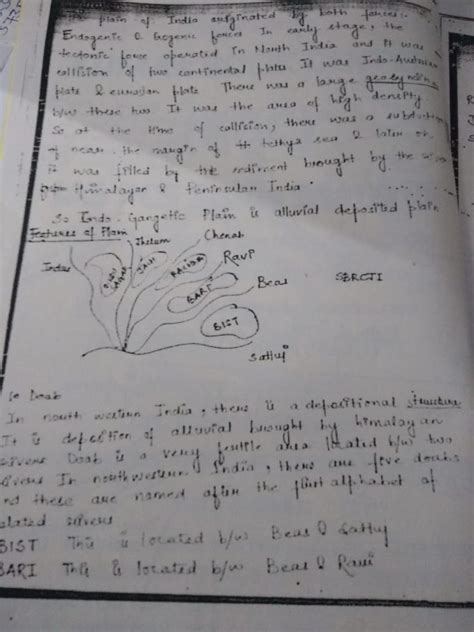 plain of India originated by both forces:-
Endogenic & Exogenic forces In early stage, the
tectonic force operated in North India and it was
collision of two continental plates It was Indo-Australian
plate & eurasian plate There was a large geosyncline
b/w these two It was the area of high density
So at the time of collision, there was a subduction
of near the margin of tethys sea & later on
it was filled by the sediment brought by the
Himalayan & Peninsular India
So Indo-Gangetic Plain is alluvial deposited plain
Features of Plain
Jhelum
Chenab
Indus
Ravi
JECH
RACHNA
BARI
Beas
SBRCJI
BIST
Sattuj
Doab
In north western India, there is a depositional structure
It is depostion of alluvial brought by himalayan
rivers Doab is a very fertile area located b/w two
rivers In northwestern India, there are five doabs
and these are named after the first alphabet of
related rivers
BIST This is located b/w Beas & Sattuj
BARI This is located b/w Beas & Ravi